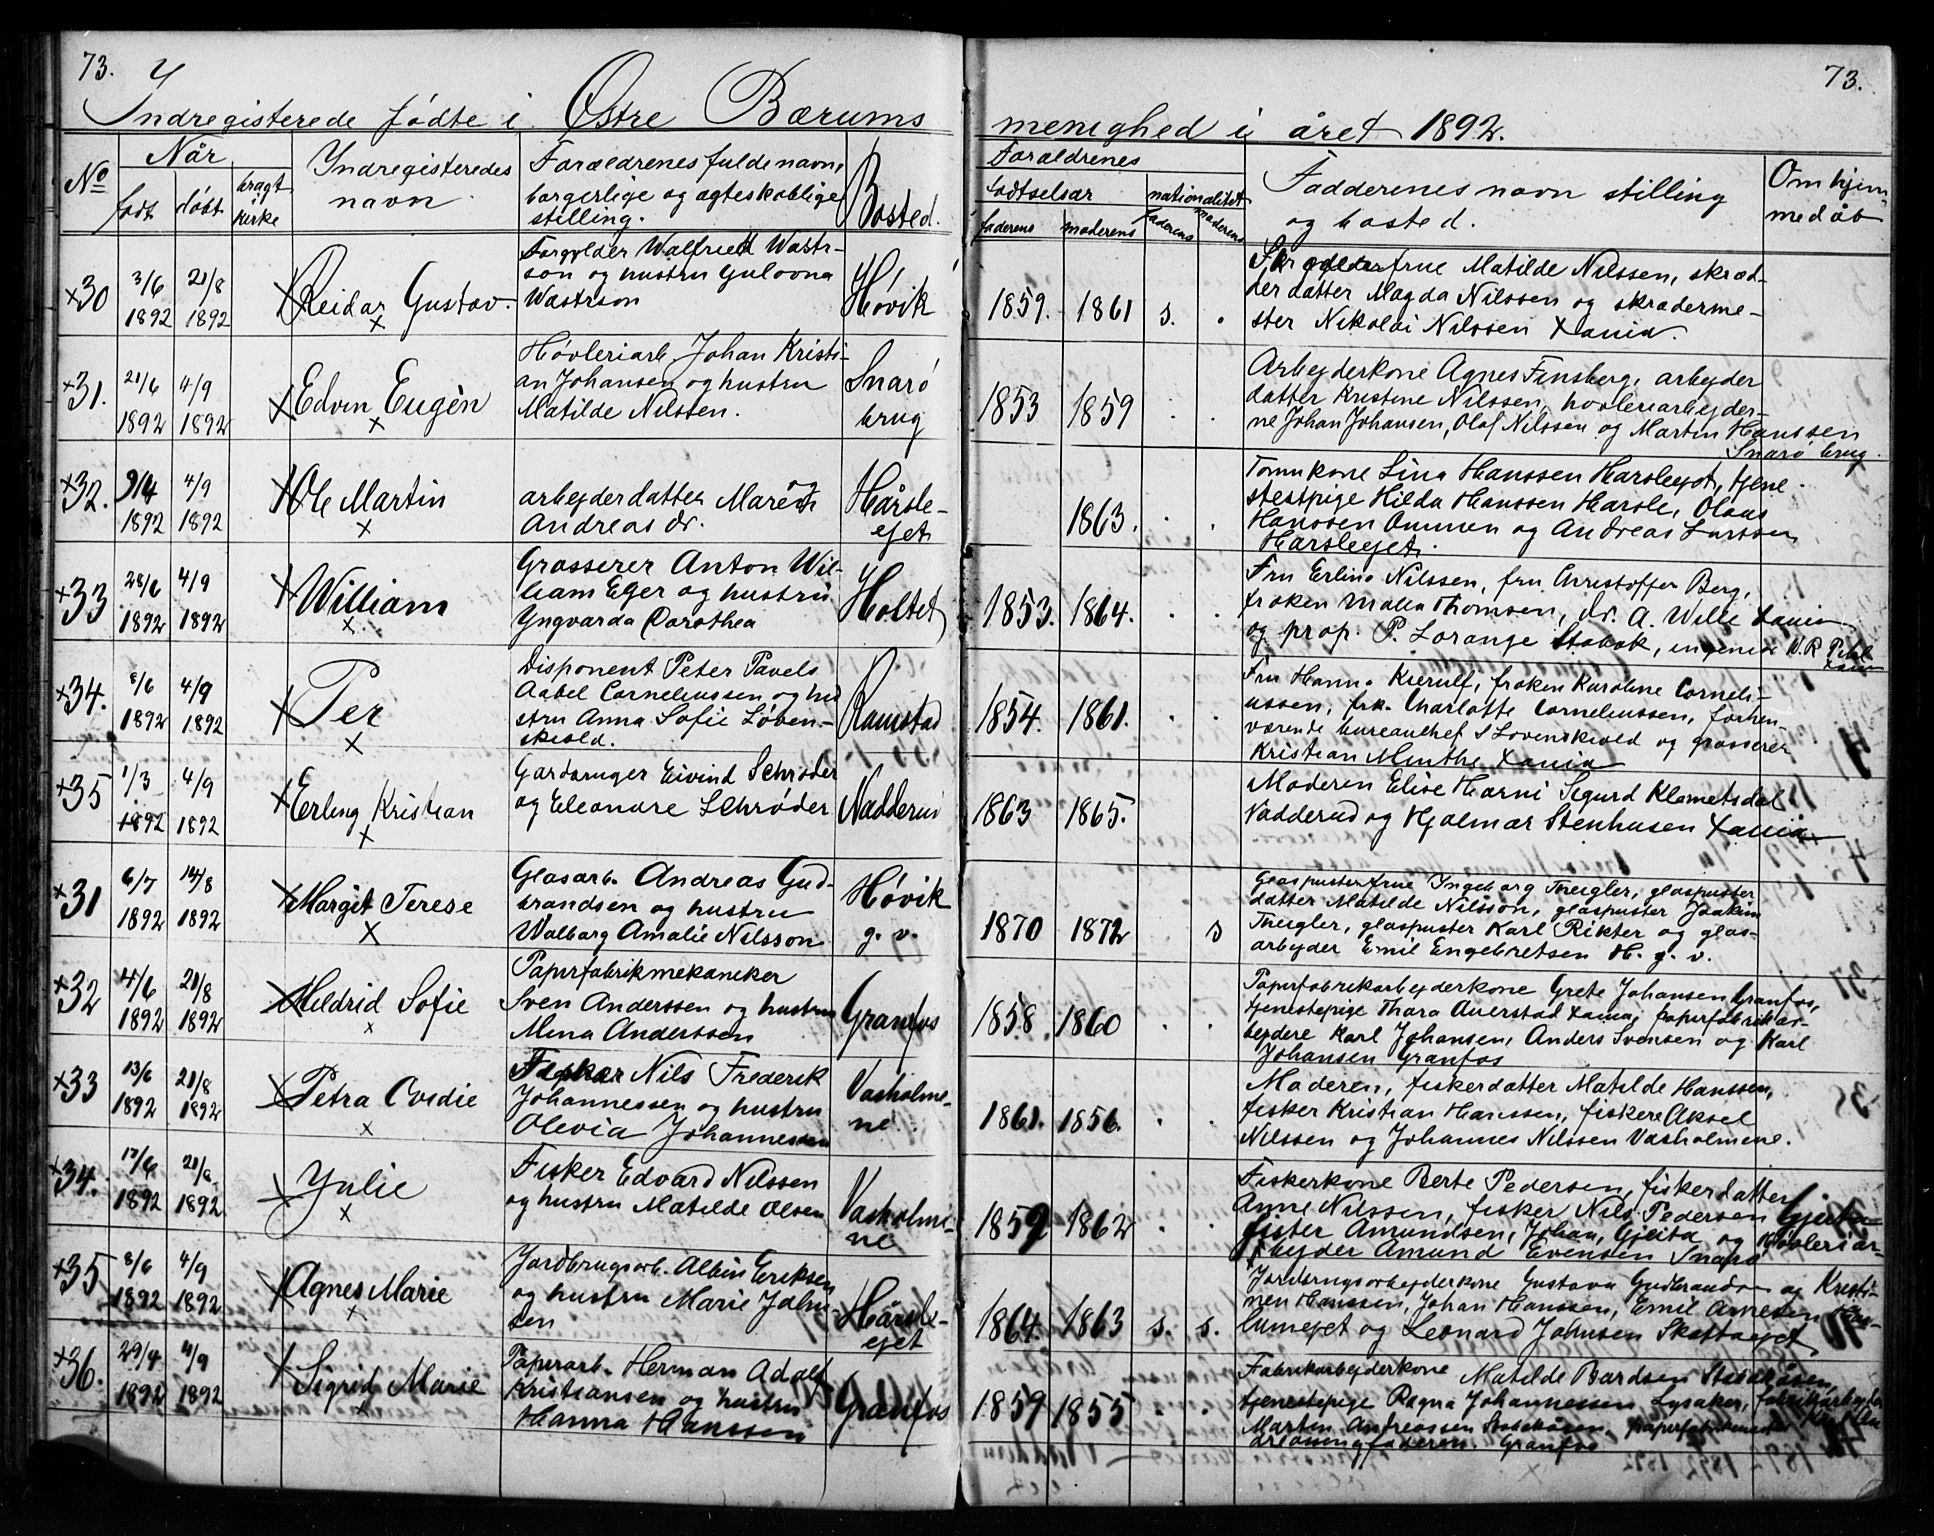 73.
73.
Indregisterede fødte i Østre Bærums
menighed i året 1892.
No
Når
født
døbt
bragt i kirke
Indregisteredes navn
Forældrenes fulde navn,
borgerlige og ægteskablige
stilling.
Bosted.
Forældrenes
fødtselsår
faderens
moderens
nationalitet
faderens
moderens
Fadderenes navn stilling
og bosted.
Om hjem-
medøb
×30
3/6 1892
21/8 1892
Reidar Gustav
Forgylder Walfried Wastr-
son og hustru Gulovna
Wastrson
Høvik
1859.
1861
s.
.
frue Matilde Nilssen, skræd-
derdatter Magda Nilssen og skræderme-
ster Nikolai Nilssen Xania.
×31.
21/6 1892
4/9 1892
Edvin Eugèn
Høvleriarb. Johan Kristi-
an Johansen og hustru
Matilde Nilssen.
Snarø
brug
1853
1859
Arbejderkone Agnes Finsberg, arbejder
datter Kristine Nilssen, høvleriarbejder-
ne Johan Johansen, Olaf Nilssen og Martin Hanssen
Snarø brug.
×32.
9/4 1892
4/9 1892
Ole Martin
arbejderdatter Maren
Andreasdr.
Hårsle-
ejet
1863.
Tomtkone Lina Hanssen Harslegjet, tjene-
stespige Hilda Hanssen Harsle, Olaus
Hanssen Ommen og Andreas Larssen
Harslegjet.
×33
28/6 1892
4/9 1892
William
Grosserer Anton Wil-
liam Eger og hustru
Yngvarda Dorothea
Holtet
1853.
1864.
Fru Erlina Nilssen, fru Christoffer Berg,
frøken Molla Thomsen, dr. A. Wille Xania
og prop. P. Lorange Stabæk, ingeniør W. R.
Xania
×34.
8/6 1892
4/9 1892
Per
Disponent Peter Pavels
Aabel Corneliussen og hu-
stru Anna Sofie Løven-
skiold.
Ramstad
1854.
1861.
Fru Hanna Kierulf, frøken Karoline Corneli-
ussen, frk. Charlotte Corneliussen, forhen-
værende bureauchef S Lovenskiold og grosserer
Kristian Minthe Xania
×35
1/3 1892
4/9 1892
Erling Kristian
Gardbruger Eivind Schrøder
og Eleonore Schrøder
Nadderud
1863
1865.
Moderen Elise Harni Sigurd Klometsdal
Nadderud og Hjalmar Stenhusen Xania
×31
6/7 1892
14/8 1892
Margit Terese
Glasarb. Andreas Gud-
brandsen og hustru
Walborg Amalie Nilsson
Høvik
g. v.
1870
1872
s
Glaspusterfrue Ingeborg Treigler, glaspuster
datter Matilde Nilsson, glaspuster Joakim
Treigler, glaspuster Karl Rikter og glas-
arbejder Emil Engebretsen H. g. v.
×32
4/6 1892
21/8 1892
Hildrid Sofie
Papirfabrikmekaniker
Sven Anderssen og hustru
Mina Anderssen
Granfos
1858.
1860
Papirfabrikarbejderkone Grete Johansen Granfos,
tjenestepige Thara Auerstad Xania, papirfabrikar-
bejdere Karl Johansen, Anders Svensen og Karl
Johansen Granfos
×33
13/6 1892
21/8 1892
Petra Ovidie
Fisker Nils Frederik
Johannessen og hustru
Olevia Johannessen
Vasholme-
ne.
1861.
1856.
Moderen, fiskerdatter Matilde Hanssen,
fisker Kristian Hanssen, fiskere Aksel
Nilssen og Johannes Nilssen Vasholmene.
×34.
17/6 1892
21/8 1892
Julie
Fisker Edvard Nilssen
og hustru Matilde Olsen
Vasholme-
ne
1859
1862
Fiskerkone Berte Pedersen, fiskerdatter
Anne Nilssen, fisker Nils Pedersen Gjeita
fisker Amundsen, Johan, Gjeita og Høvleriar-
bejder Amund Evensen Snarø
×35
8/6 1892
4/9 1892
Agnes Marie
Jordbrugsarb. Albin Eriksen
og hustru Marie John-
sen
Hårsle-
ejet
1864.
1863
s.
s.
Jordbrugsarbejderkone Gustava Gudbrands og Kristi-
nen Hanssen, Johan Hanssen, Emil Arnesen Has-
lumejet og Leonard Johnsen Skottaejet
×36.
29/4 1892
4/9 1892
Sigrid Marie
Papirarb. Herman Adolf
Kristiansen og hustru
Hanna Hanssen
Granfos
1859
1855
Fabrikarbejderkone Matilde Bardsen
tjenestepige Ragna Johannessen Lysaker, fabrikarbejder
Martin Andreassen papirfabrikmester Karl An-
dreasen og faderen. Granfos